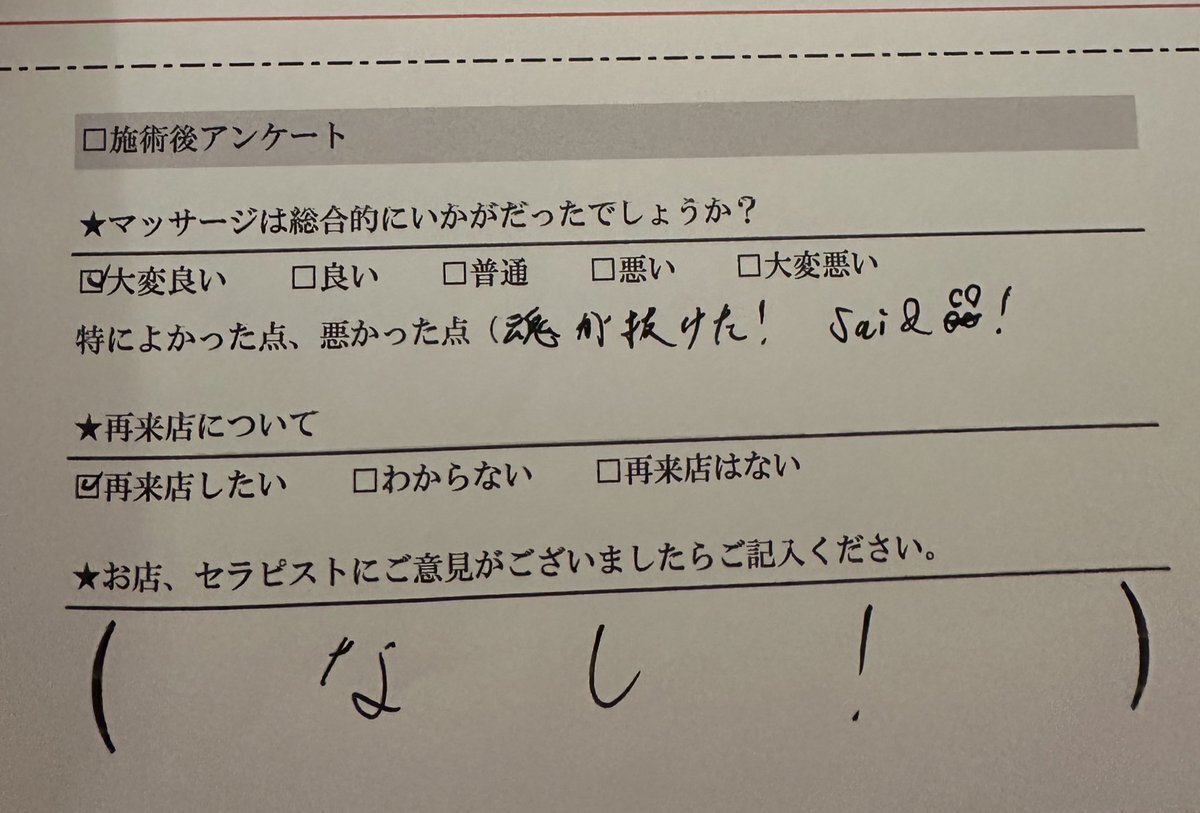 □施術後アンケート
★マッサージは総合的にいかがだったでしょうか？
☑大変良い □良い □普通 □悪い □大変悪い
特によかった点、悪かった点（魂が抜けた！ Sai & co!
★再来店について
☑再来店したい □わからない □再来店はない
★お店、セラピストにご意見がございましたらご記入ください。
( なし！ )